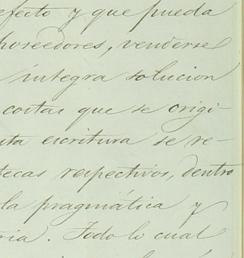 efecto y que pueda
poseedores, venderse
íntegra solucion
costas que se origi-
sta escritura se re-
tecas respectivos, dentro
la pragmática y
ria. Todo lo cual